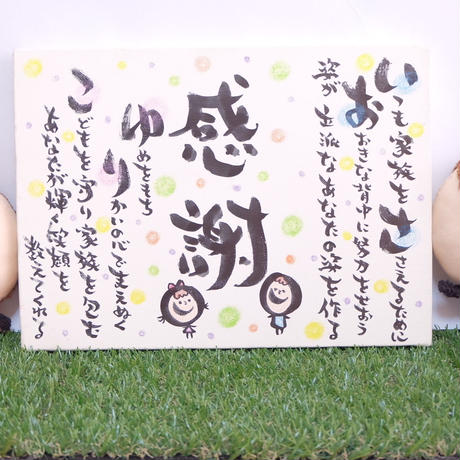 いつも家族をささえるために
おおきな背中に努力をせおう
姿が立派なあなたの姿を作る
感謝
ゆめをもち
りかいの心で支えぬく
こどもを守り家族を包む
あなたが輝く笑顔を
教えてくれる